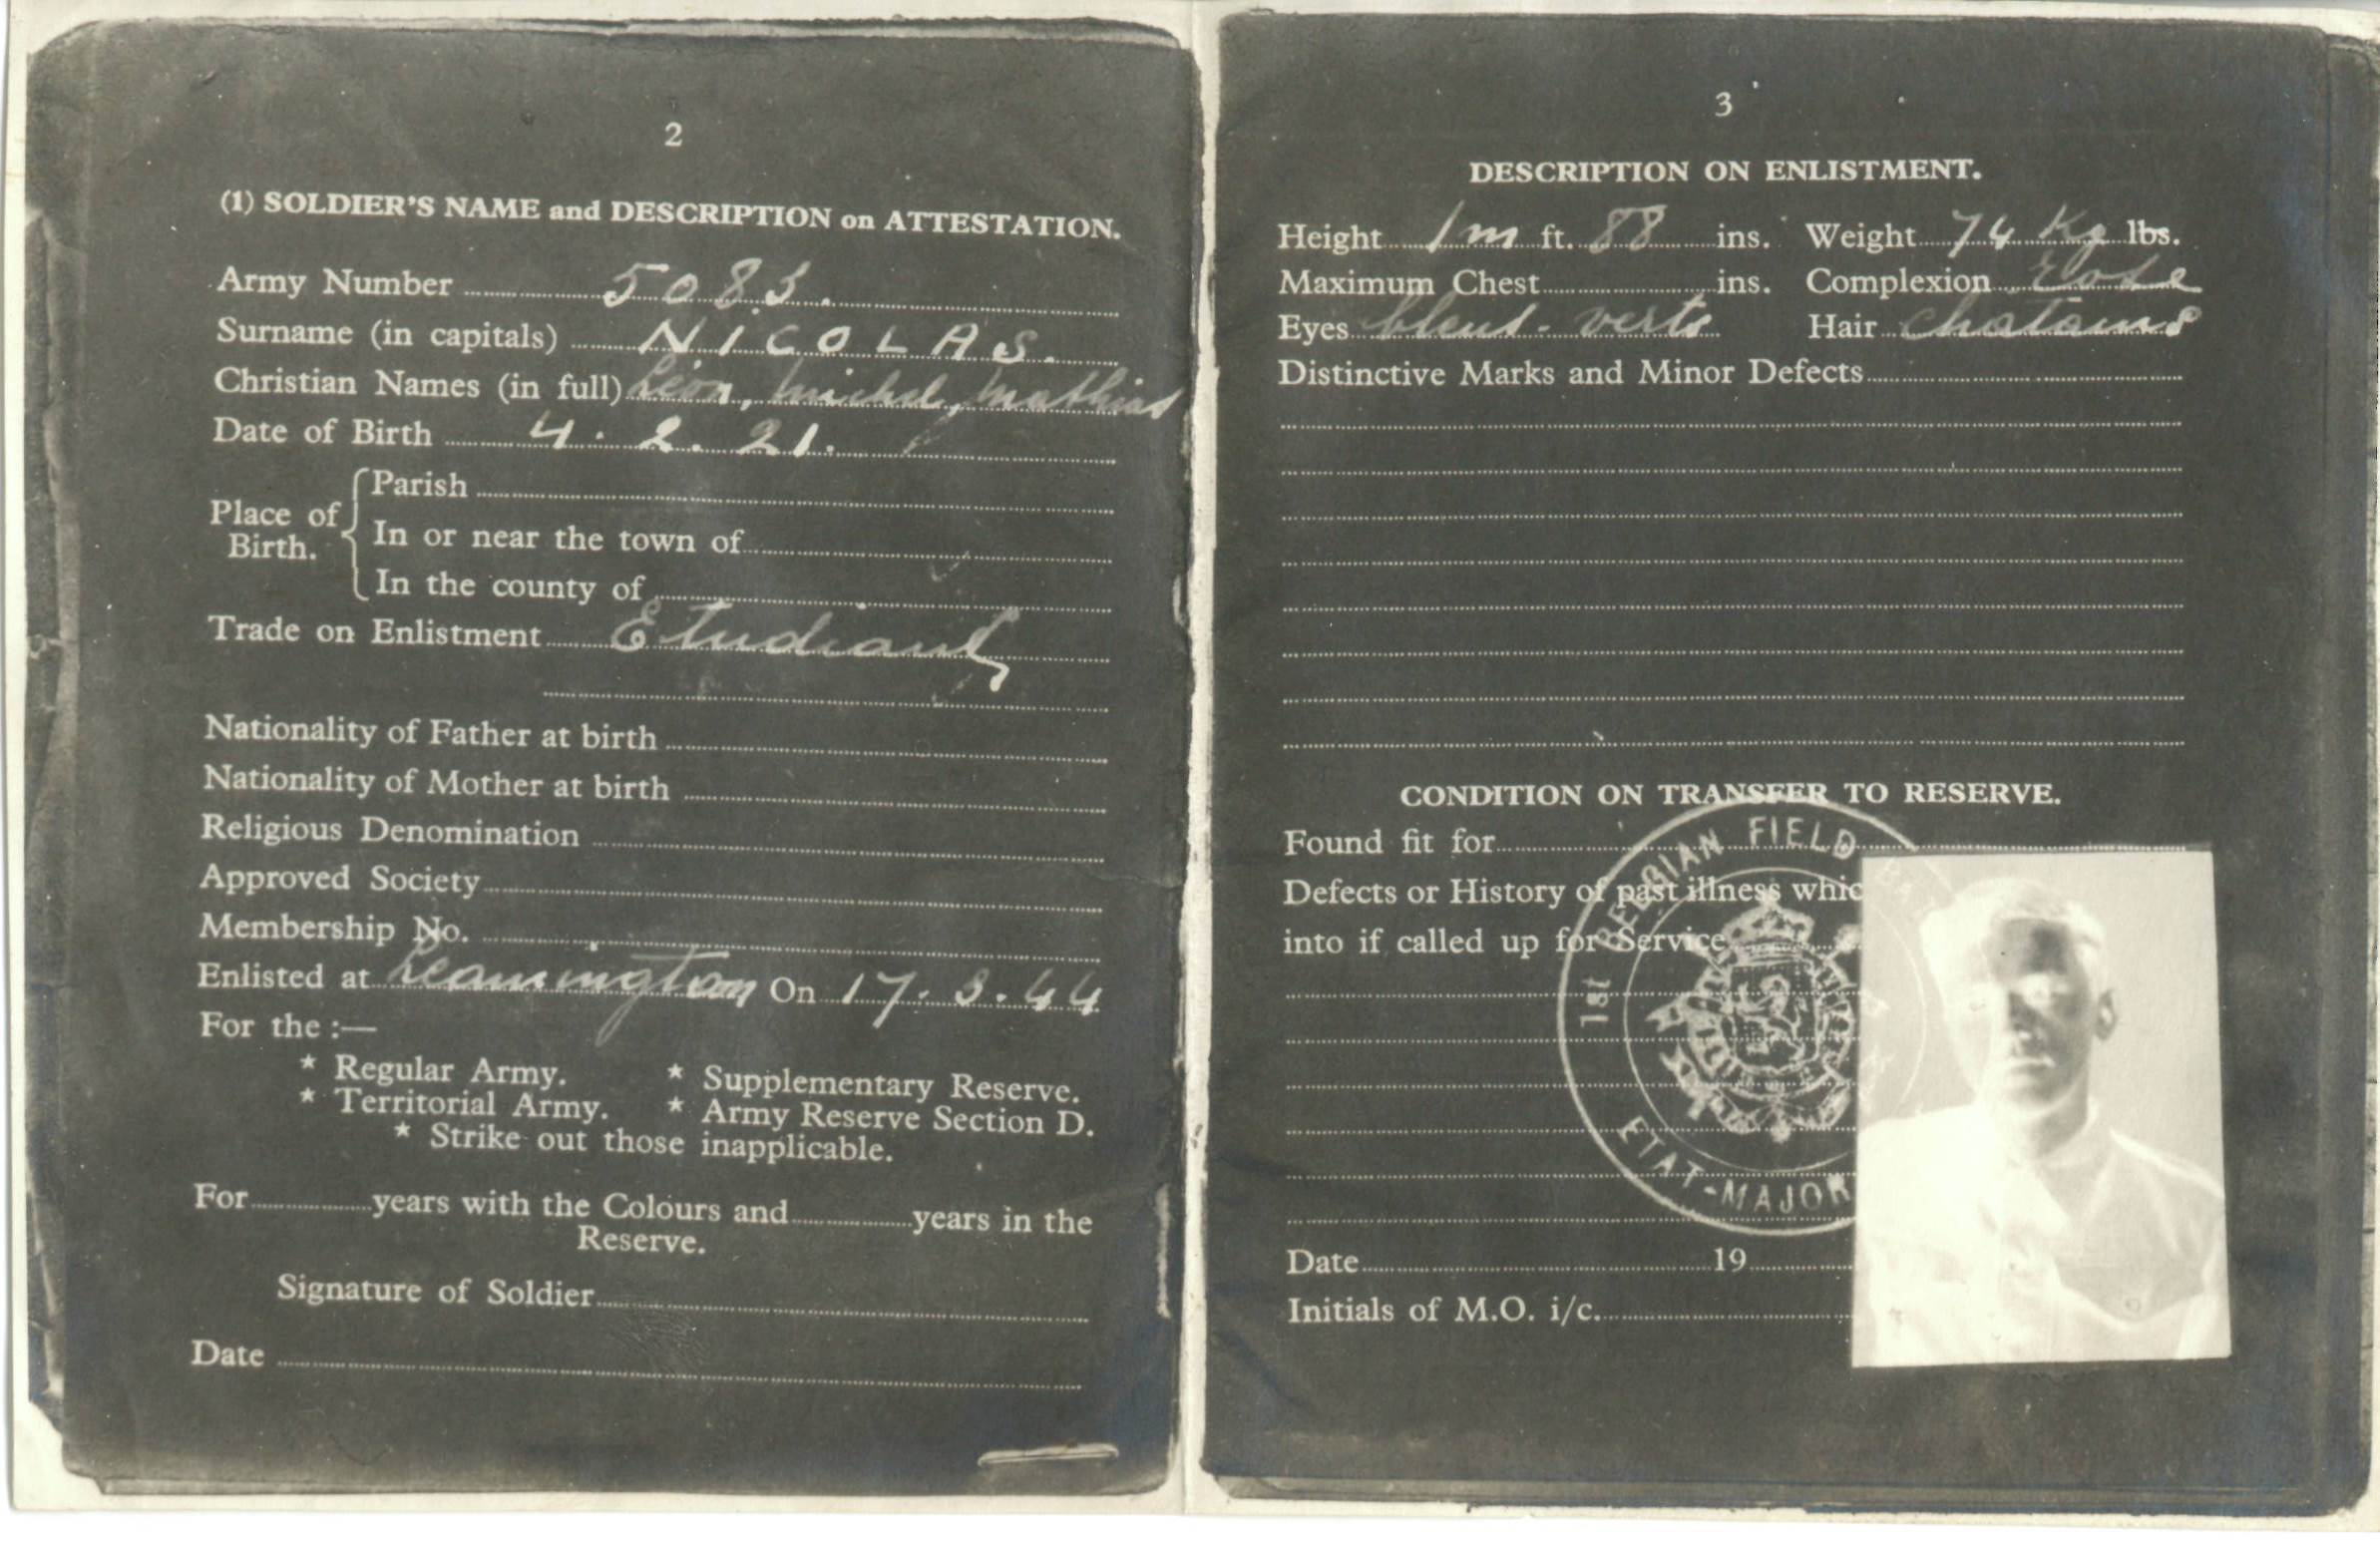 2
(1) SOLDIER'S NAME and DESCRIPTION on ATTESTATION.
Army Number 5083.
Surname (in capitals) NICOLAS.
Christian Names (in full) Léon, Michel, Mathias
Date of Birth 4.2.21.
Place of Birth.
Parish
In or near the town of
In the county of
Trade on Enlistment Etudiant
Nationality of Father at birth
Nationality of Mother at birth
Religious Denomination
Approved Society
Membership No.
Enlisted at Leamington On 17.3.44
For the :—
* Regular Army. * Supplementary Reserve.
* Territorial Army. * Army Reserve Section D.
* Strike out those inapplicable.
For years with the Colours and years in the
Reserve.
Signature of Soldier
Date
3
DESCRIPTION ON ENLISTMENT.
Height 1m ft. 88 ins. Weight 74 Kg lbs.
Maximum Chest ins. Complexion Rose
Eyes bleus-verts Hair chatains
Distinctive Marks and Minor Defects
CONDITION ON TRANSFER TO RESERVE.
Found fit for
Defects or History of past illness whic
into if called up for Service
1st BELGIAN FIELD
ETAT-MAJOR
Date 19
Initials of M.O. i/c.